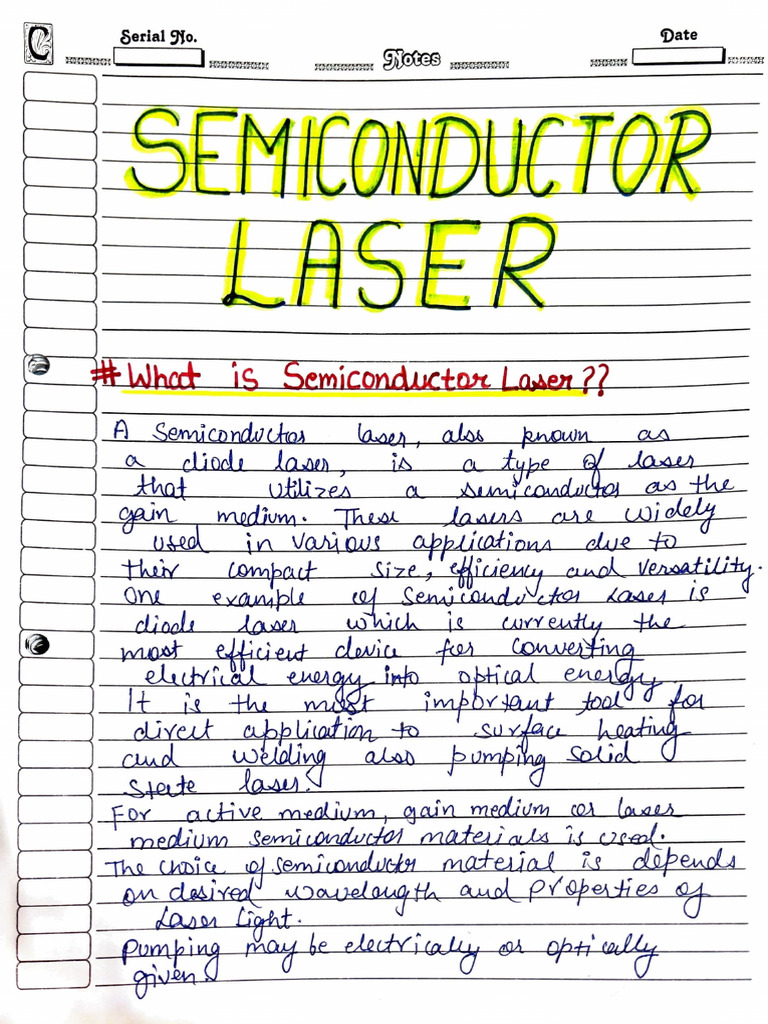 C
Serial No.
Notes
Date
SEMICONDUCTOR
LASER
# What is Semiconductor Laser??
A Semiconductor laser, also known as
a diode laser, is a type of laser
that utilizes a semiconductor as the
gain medium. These lasers are widely
used in various applications due to
their compact size, efficiency and versatility.
One example of Semiconductor Laser is
diode laser which is currently the
most efficient device for converting
electrical energy into optical energy.
It is the most important tool for
direct application to surface heating
and welding also pumping solid
state laser.
For active medium, gain medium or laser
medium semiconductor materials is used.
The choice of semiconductor material is depends
on desired wavelength and properties of
Laser Light.
Pumping may be electrically or optically
given.